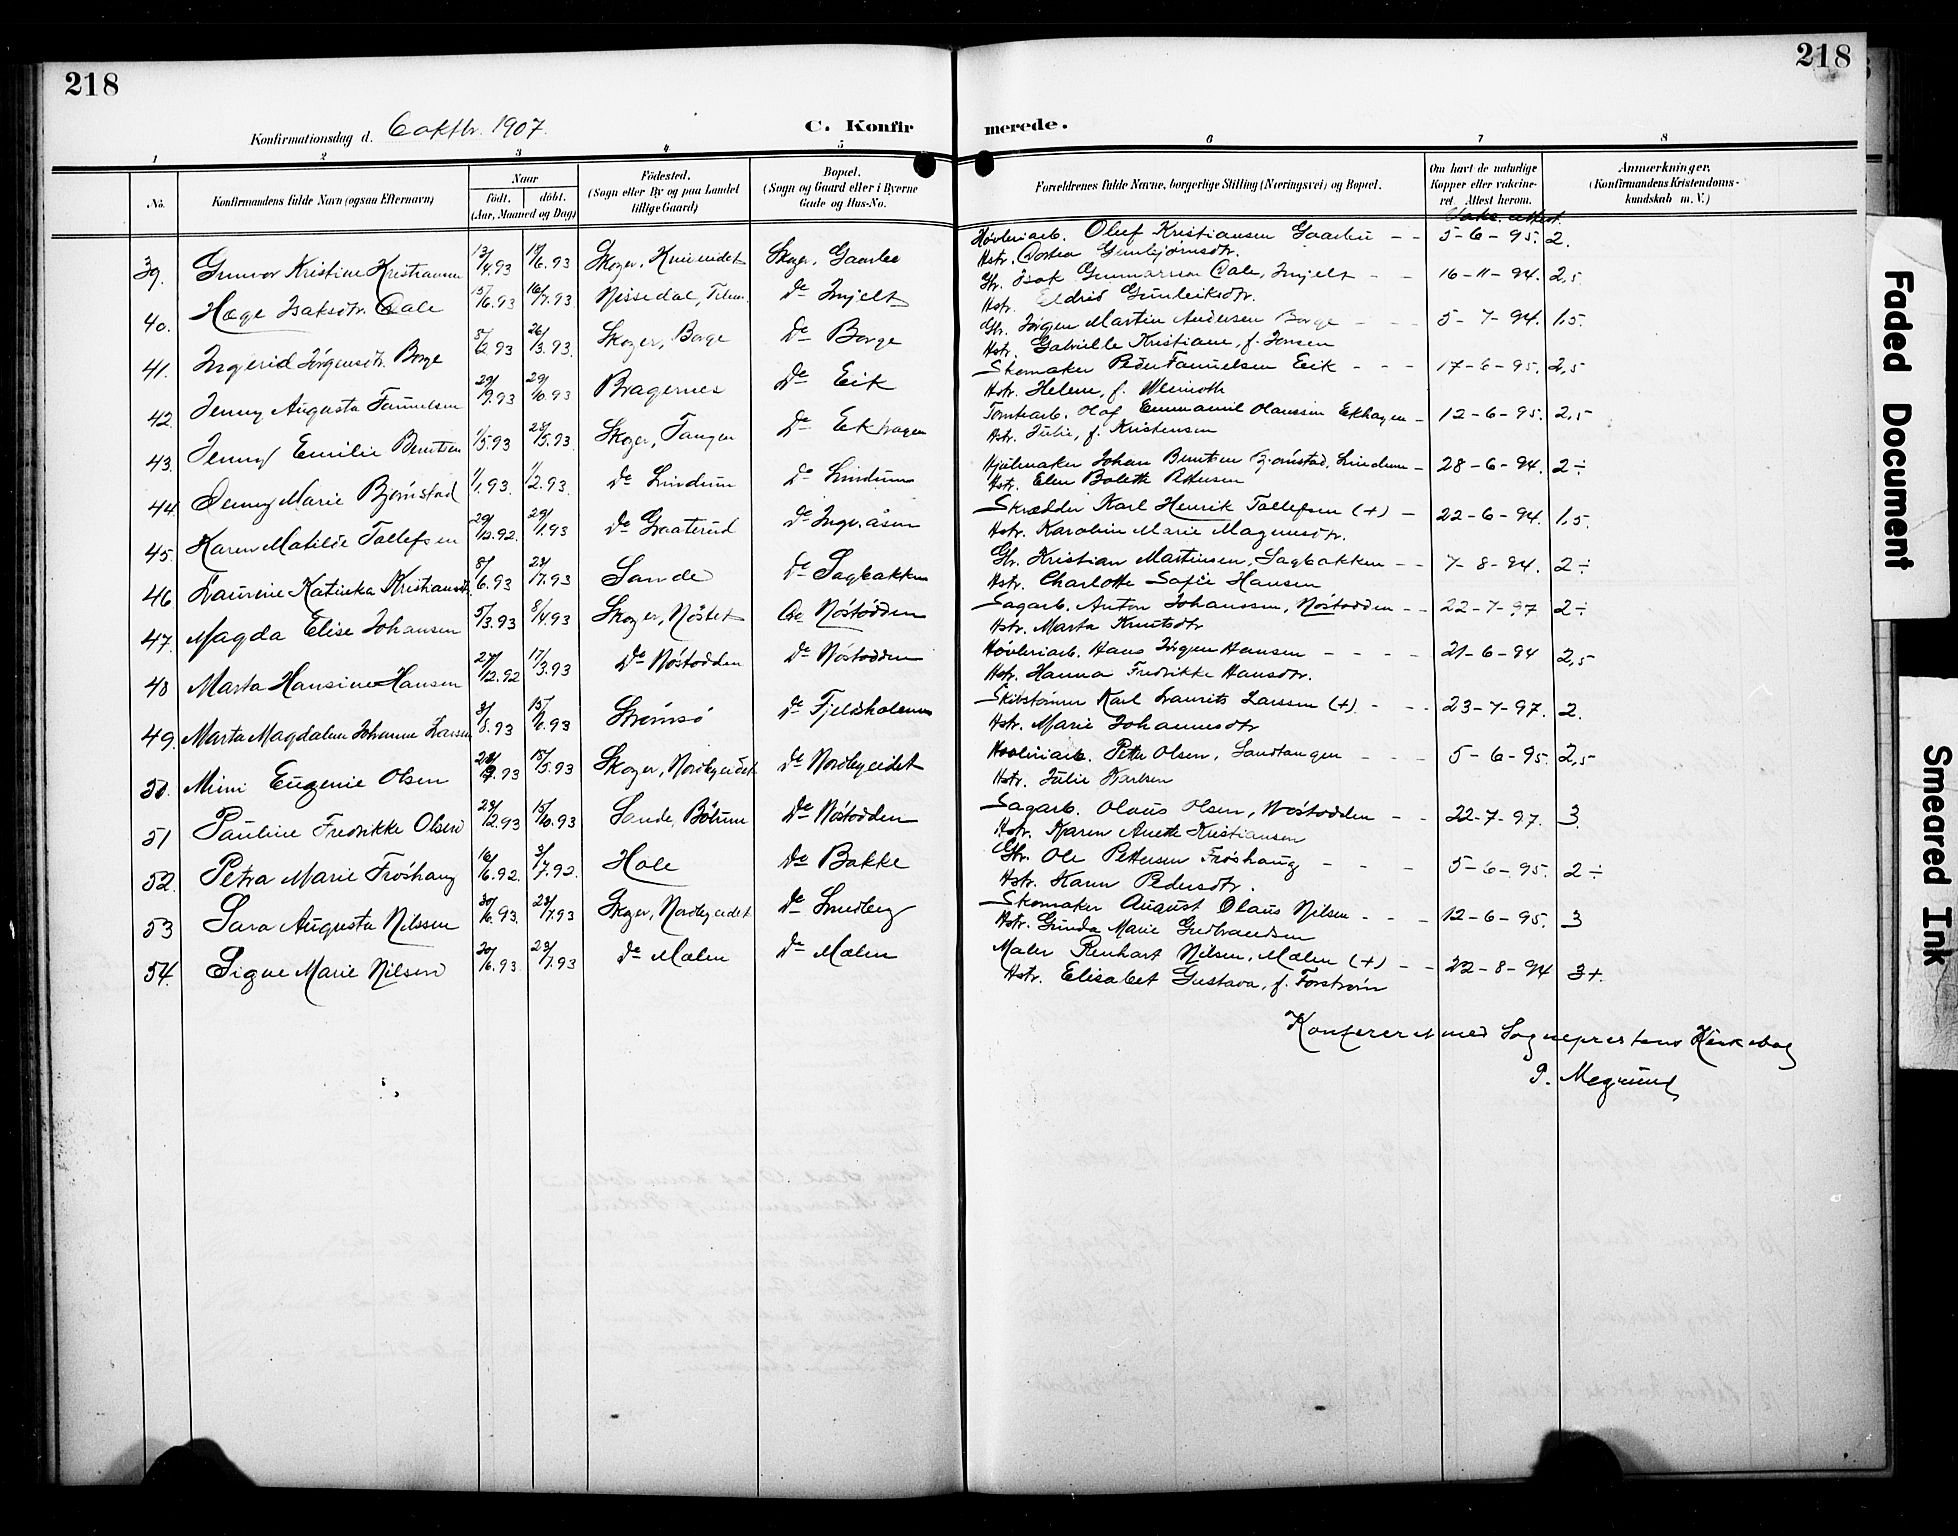 218
218
Konfirmationsdag d. 6 oktbr. 1907.
C. Konfirmerede.
1 2 3 4 5 6 7 8
No.
Konfirmandens fulde Navn (ogsaa Efternavn)
Naar
født. døbt.
(Aar, Maaned og Dag)
Fødested.
(Sogn eller By og paa Landet
tillige Gaard)
Bopæl.
(Sogn og Gaard eller i Byerne
Gade og Hus-No.
Forældrenes fulde Navne, borgerlige Stilling (Næringsvei) og Bopæl.
Om havt de naturlige
Kopper eller vakcine-
ret. Attest herom.
Anmerkninger.
(Konfirmandens Kristendoms-
kundskab m. V.)
Vaks. attest.
39. Gunvor Kristine Kristiansen 13/4.93 19/6.93 Skoger, Skoger, Gaarlie Høvleriarb. Oluf Kristiansen Gaarlie - - 5-6-95. 2.
Hstr. Dortea Gunbjørnsdtr.
40. Hæge Isaksdtr. Dale 15/6.93 16/7.93 Nissedal, Telem. Do Gbr. Isak Gunnarsen Dale, - - 16-11-94. 2,5
Hstr. Eldrid Gunleiksdtr.
41. Ingerid Jørgensdtr. Borge 5/2.93 26/3.93. Skoger, Borge Do Borge Gbr. Jørgen Martin Andersen Borge - - - 5-7-94. 1,5.
Hstr. Gabrielle Kristiane, f. Jensen
42. Jenny Augusta Fanuelsen 29/9.93 29/10.93 Bragernes Do Eik Skomaker Peder Fanuelsen Eik - - - 17-6-95. 2,5
Hstr. Helene, f.
43. Jenny Emilie Berntsen 1/5.93 28/5.93 Skoger, Tangen Do Ekhagen Tomtearb. Olaf Emmanuel Olaussen Ekhagen - 12-6-95. 2,5
Hstr. Julie, f. Kristensen
44. Jenny Marie Bjørnstad 1/1.93. 1/2.93. Do Lindum Do Lindum Hjulmaker Johan Berntsen Bjørnstad, Lindum - 28-6-94. 2÷
Hstr. Elen Bolette Pettersen
45. Karen Matilde Tollefsen 29/12.92. 29/1.93 Do Graaterud Do Skrædder Karl Henrik Tollefsen (+) - 22-6-94. 1,5.
Hstr. Karoline Marie Magnusdtr.
46. Laurine Katinka Kristiansdtr. 5/6.93 23/7.93 Sande Do Sagbakken Gbr. Kristian Martinsen, Sagbakken - - 7-8-94. 2÷
Hstr. Charlotte Sofie Hansen
47. Magda Elise Johansen 5/3.93 8/4.93 Skoger, Nøstet Do Nøstodden Sagarb. Anton Johanssen, Nøstodden - - 22-7-97 2÷
Hstr. Marta Knutsdtr
48 Marta Hansine Hansen 27/12.92 17/3.93 Do Nøstodden Do Nøstodden Høvleriarb. Hans Jørgen Hansen - - - - 21-6-94 2,5
Hstr. Hanna Fredrikke Hansdtr.
49. Marta Magdalene Johanne Larsen 3/5.93 15/6.93 Strømsø Do Fjeldsholmen Skibstømm Karl Laurits Larssen (+). - - - 23-7-97. 2.
Hstr. Marie Johannesdtr
50. Mimi Eugenie Olsen 15/5.93 Skoger, Nordbyeidet Do Nordbyeidet Høvleriarb. Petter Olsen, Sandtangen - - - 5-6-95. 2,5
Hstr. Julie Karlsen
51 Pauline Fredrikke Olsen 23/12.93 15/10.93 Sande, Do Nøstodden Sagarb. Olaus Olsen, Nøstodden - - 22-7-97. 3.
Hstr. Karen Anette Kristiansen
52. Petra Marie Frøshaug 16/6.92. 3/7.92. Hole Do Bakke Gbr. Ole Pettersen Frøshaug - - - 5-6-95. 2÷
Hstr. Karen Pedersdtr.
53 Sara Augusta Nilssen 30/6.93. 23/7.93 Skoger, Nordbyeidet Do Smedberg Skomaker August Olaus Nilsen - - - 12-6-95. 3
Hstr. Gunda Marie Gudbrandsen
54. Signe Marie Nilsen 20/6.93. 23/7.93 Do Mælen Do Mælen Maler Renhart Nilsen, Mælen (+) - - 22-8-94 3+.
Hstr. Elisabet Gustava, f. Forstrøm
Konfereret med Sogneprestens Kirkebog
P.
Faded Document
Smeared Ink